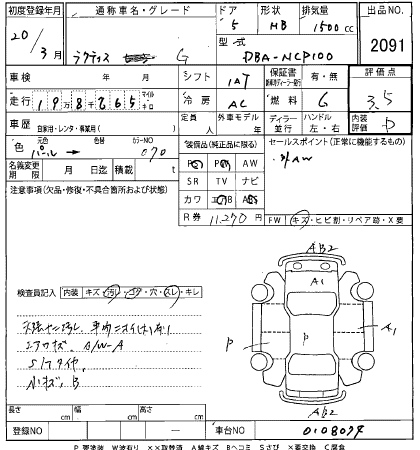 初度登録年月 通称車名・グレード ドア 形状 排気量 出品NO.
20/3月 ラクティス G 5 HB 1500cc 2091
型式 DBA-NCP100
車検 年 月 シフト IAT 保証書 有・無 評価点
走行 198265 マイル キロ 冷房 AC 燃料 G 3.5
車歴 自家用・レンタ・積業用( ) 定員 人 外車モデル 年 ディーラー 並行 ハンドル 左・右 内装評価 D
色 元色 パール → 色替 カラーNO 070 装備品(純正品に限る) セールスポイント(正常に機能するもの)
名義変更期限 月 日迄 積載 t PS PW AW
注意事項(欠品・修復・不具合箇所および状態) SR TV ナビ
カワ エアB ABS
R券 11,270円 FW キズ・ヒビ割・リペア跡・X要
AB2
A1
検査員記入 内装 キズ・汚レ・コゲ・穴・スレ・キレ
天張ヤニ汚レ、車内ニオイ有り
コアツキズ、A/W-A
S/Tタイヤ
小キズ、B
P P A1
AB2
長さ cm 幅 cm 高さ cm
登録NO ー 車台NO 0108079
P 要塗装 W波有り ××取替済 A線キズ Bヘコミ Sさび ×要交換 C腐食